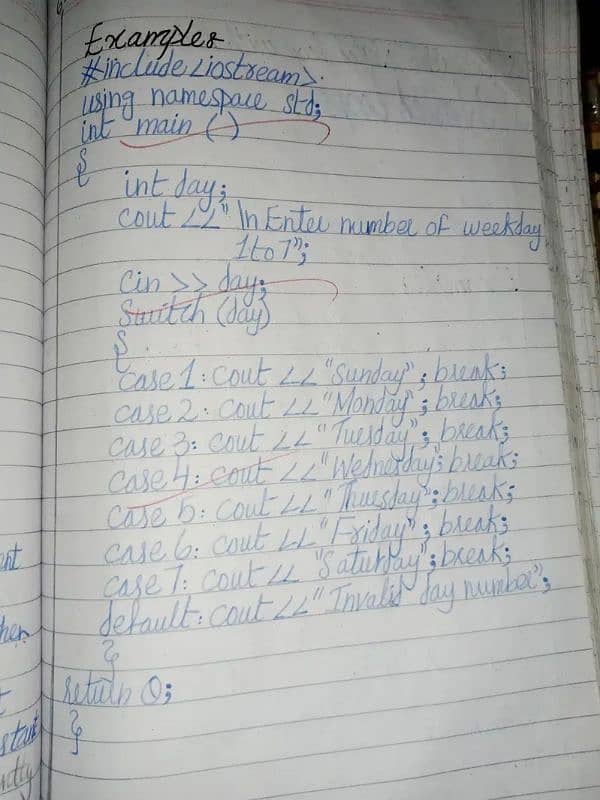 Examples
#include <iostream>.
using namespace std;
int main ( )
{
int day;
cout <<" \n Enter number of weekday
1 to 7";
Cin >> day;
Switch (day)
{
case 1: cout <<"Sunday"; break;
case 2: cout <<"Monday"; break;
case 3: cout <<"Tuesday"; break;
case 4: cout <<"Wednesday"; break;
case 5: cout <<"Thuesday"; break;
case 6: cout <<"Friday"; break;
case 7: cout << "Saturday"; break;
default: cout <<"Invalid day number";
}
return 0;
}